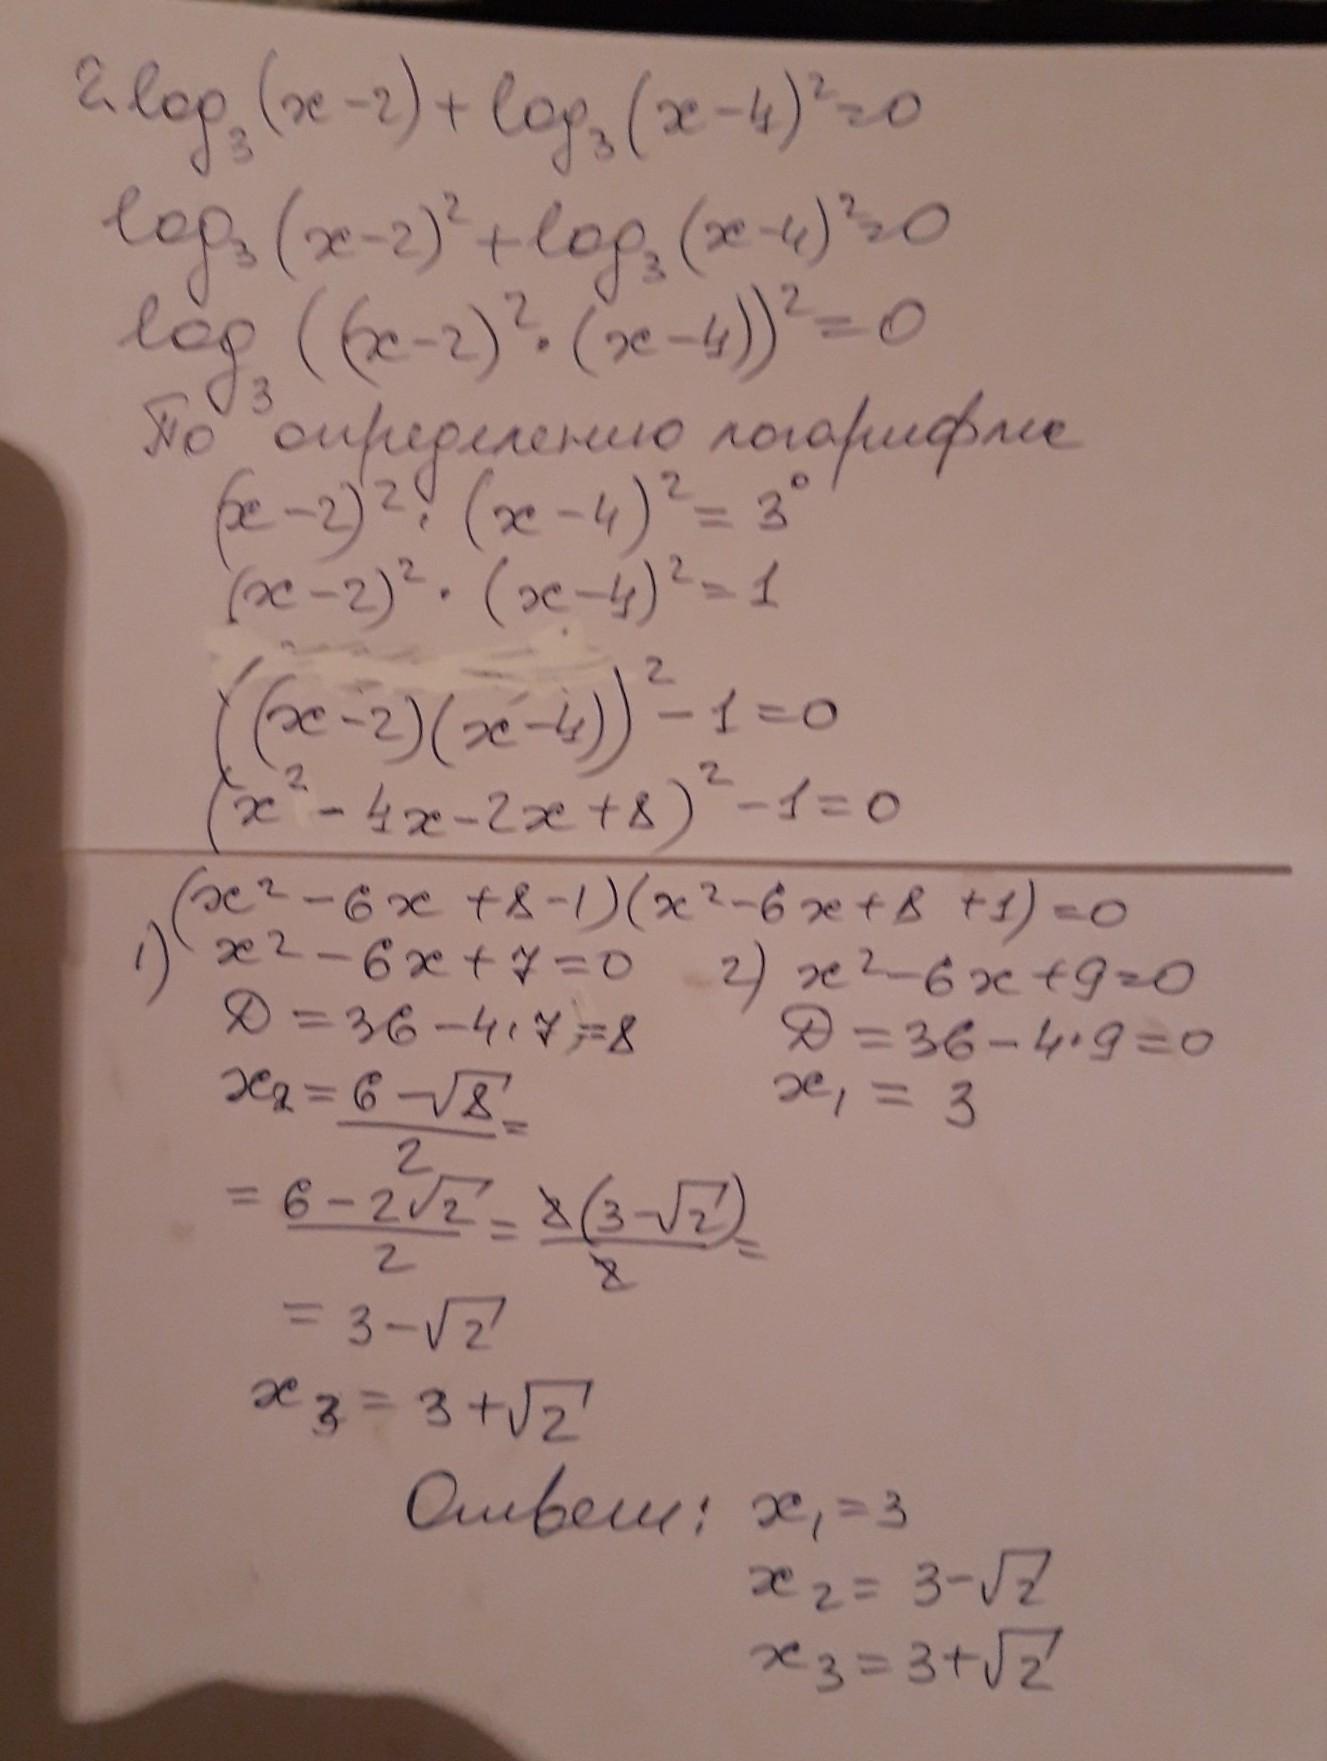 2 log₃(x-2) + log₃(x-4)² = 0
log₃(x-2)² + log₃(x-4)² = 0
log₃((x-2)² · (x-4))² = 0
По определению логарифма
(x-2)² · (x-4)² = 3⁰
(x-2)² · (x-4)² = 1
((x-2)(x-4))² - 1 = 0
(x² - 4x - 2x + 8)² - 1 = 0
(x² - 6x + 8 - 1)(x² - 6x + 8 + 1) = 0
1) x² - 6x + 7 = 0 2) x² - 6x + 9 = 0
D = 36 - 4·7 = 8 D = 36 - 4·9 = 0
x₂ = (6 - √8)/2 = x₁ = 3
= (6 - 2√2)/2 = 2(3 - √2)/2 =
= 3 - √2
x₃ = 3 + √2
Ответ: x₁ = 3
x₂ = 3 - √2
x₃ = 3 + √2